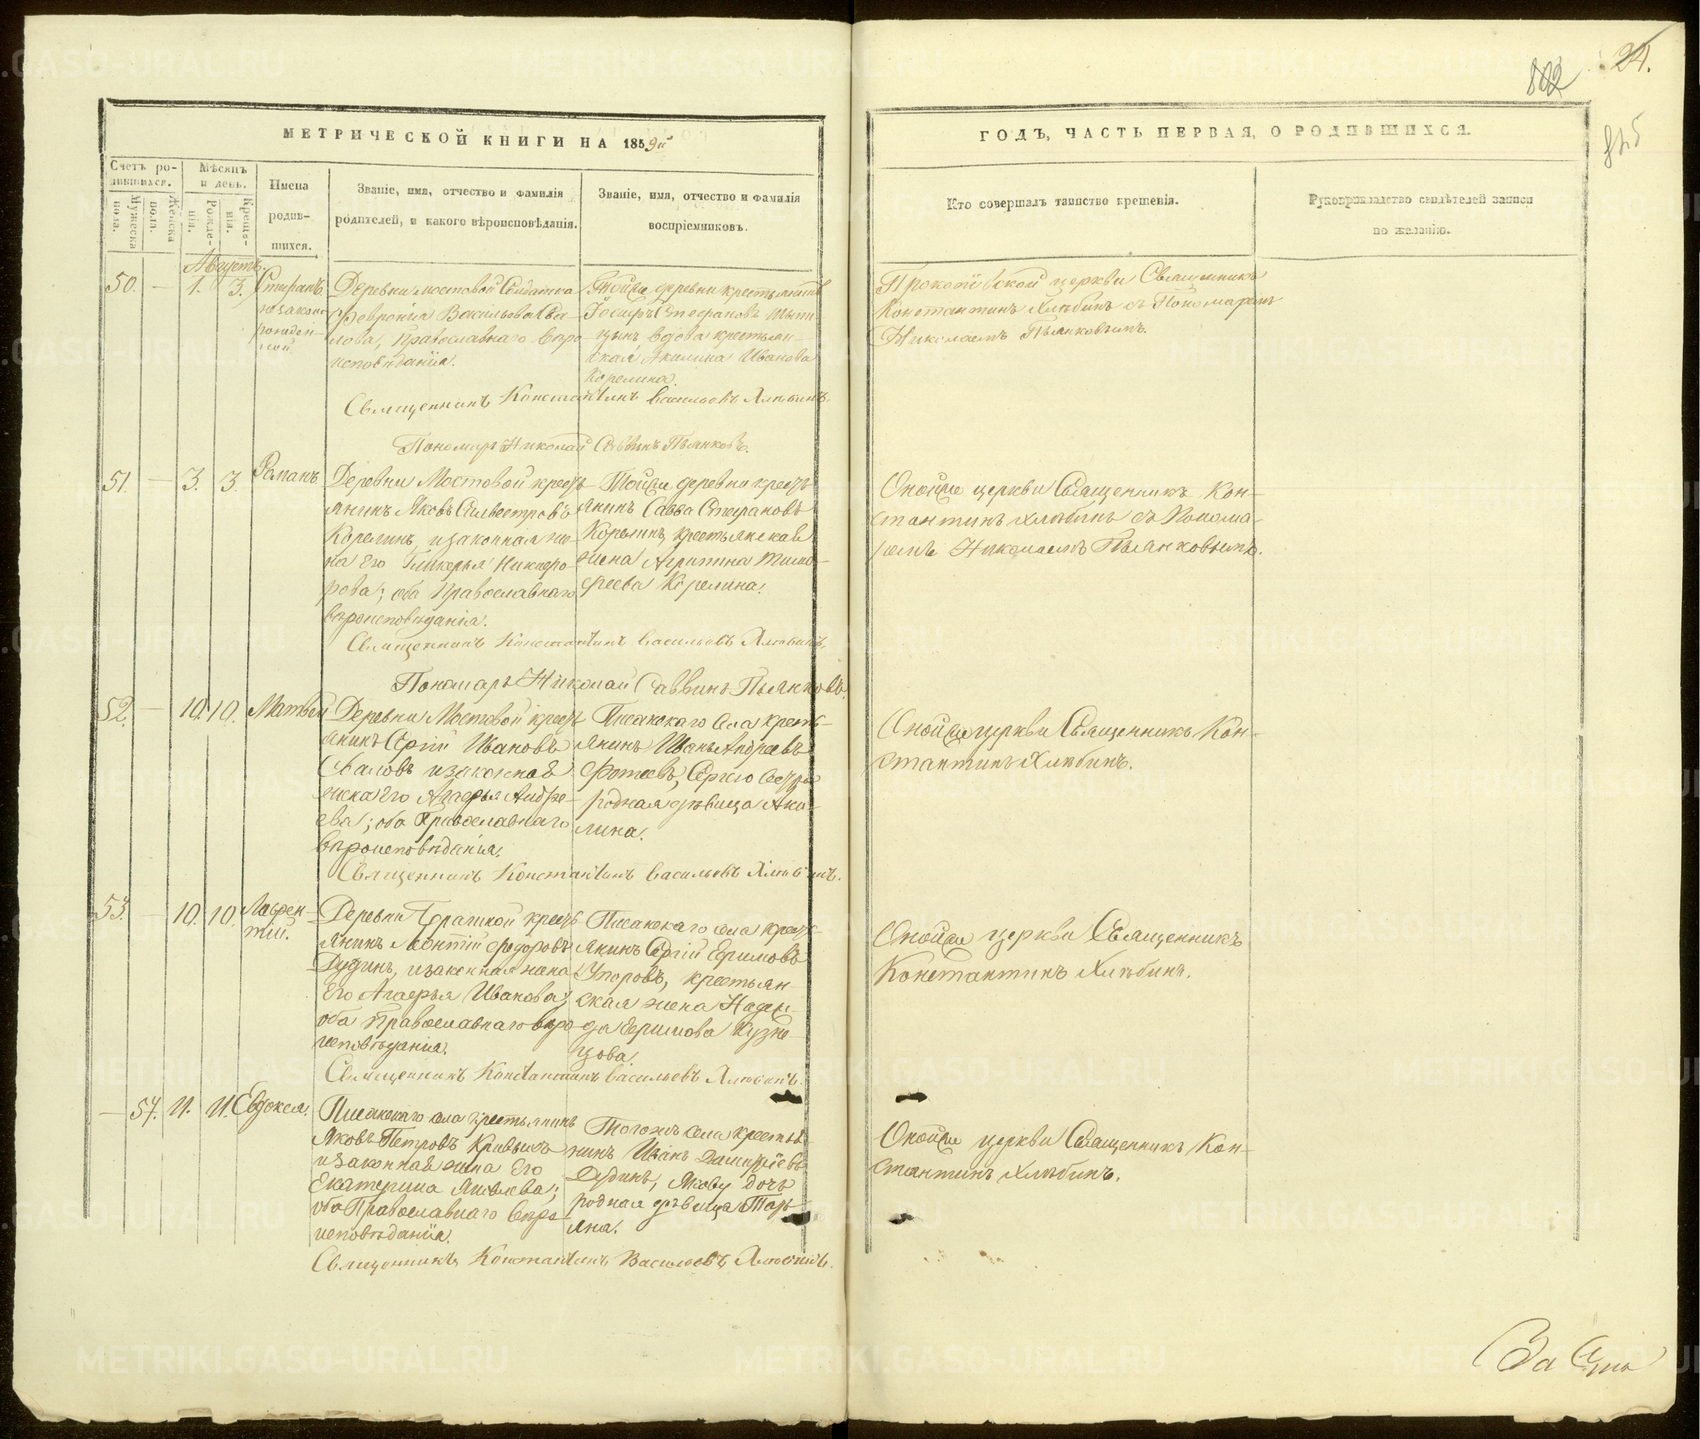 24.
802
815
МЕТРИЧЕСКОЙ КНИГИ НА 1859й
ГОДЪ, ЧАСТЬ ПЕРВАЯ, О РОДИВШИХСЯ.
Счетъ ро-
дившихся.
Мужеска
пола.
Женска
пола.
Мѣсяцъ
и день.
Рожде-
нія.
Креще-
нія.
Имена
родив-
шихся.
Званіе, имя, отчество и фамилія
родителей, и какого вѣроисповѣданія.
Званіе, имя, отчество и фамилія
воспріемниковъ.
Кто совершалъ таинство крещенія.
Рукоприкладство свидѣтелей записи
по желанію.
Августъ.
50. — 1. 3.
Стефанъ
незакон-
норожден-
ной
Деревни Мостовой Солдатка
Февронія Васильева Сва-
лова, Православнаго вѣро-
исповѣданія.
Тойже деревни крестьянинъ
Іосифъ Стефановъ
вдова крестьян-
ская Акилина Иванова
Корелина.
Прокопіевской церкви Священникъ
Константинъ Хлѣбинъ съ Пономаремъ
Николаемъ Пьянковымъ.
Священникъ Константинъ Васильевъ Хлѣбинъ.
Пономарь Николай Саввинъ Пьянковъ.
51. — 3. 3.
Романъ
Деревни Мостовой кресть-
янинъ Яковъ Сильвестровъ
Корелинъ, и законная же-
на его Гликерья Никифо-
рова; оба Православнаго
вѣроисповѣданія.
Тойже деревни кресть-
янинъ Савва Стефановъ
Корелинъ, крестьянская
жена Агрипина Тимо-
феева Корелина.
Онойже церкви Священникъ Кон-
стантинъ Хлѣбинъ съ Понома-
ремъ Николаемъ Пьянковымъ.
Священникъ Константинъ Васильевъ Хлѣбинъ.
Пономарь Николай Саввинъ Пьянковъ.
52. — 10. 10.
Матвѣй
Деревни Мостовой кресть-
янинъ Сергій Ивановъ
Сваловъ и законная
жена его Агафья Андре-
ева; оба Православнаго
вѣроисповѣданія.
Писанскаго села кресть-
янинъ Иванъ Андреевъ
Фотеевъ, Сергію Сестра
родная дѣвица Аки-
лина.
Онойже церкви Священникъ Кон-
стантинъ Хлѣбинъ.
Священникъ Константинъ Васильевъ Хлѣбинъ.
53. — 10. 10.
Лаврен-
тій.
Деревни кресть-
янинъ Леонтій Федоровъ
Дудинъ, и законная жена
его Агафья Иванова;
оба Православнаго вѣро-
исповѣданія.
Писанскаго села кресть-
янинъ Сергій Ефимовъ
Упоровъ, крестьян-
ская жена Надеж-
да Ефимова Кузне-
цова.
Онойже церкви Священникъ
Константинъ Хлѣбинъ.
Священникъ Константинъ Васильевъ Хлѣбинъ.
— 54. 11. 11.
Евдокея.
Писанскаго села крестьянинъ
Яковъ Петровъ Кривыхъ
и законная жена его
Екатерина Яковлева;
оба Православнаго вѣро-
исповѣданія.
Тогожъ села крестья-
нинъ Иванъ Димитріевъ
Дудинъ, Якову дочь
родная дѣвица Тать-
яна.
Онойже церкви Священникъ Кон-
стантинъ Хлѣбинъ.
Священникъ Константинъ Васильевъ Хлѣбинъ.
METRIKI.GASO-URAL.RU